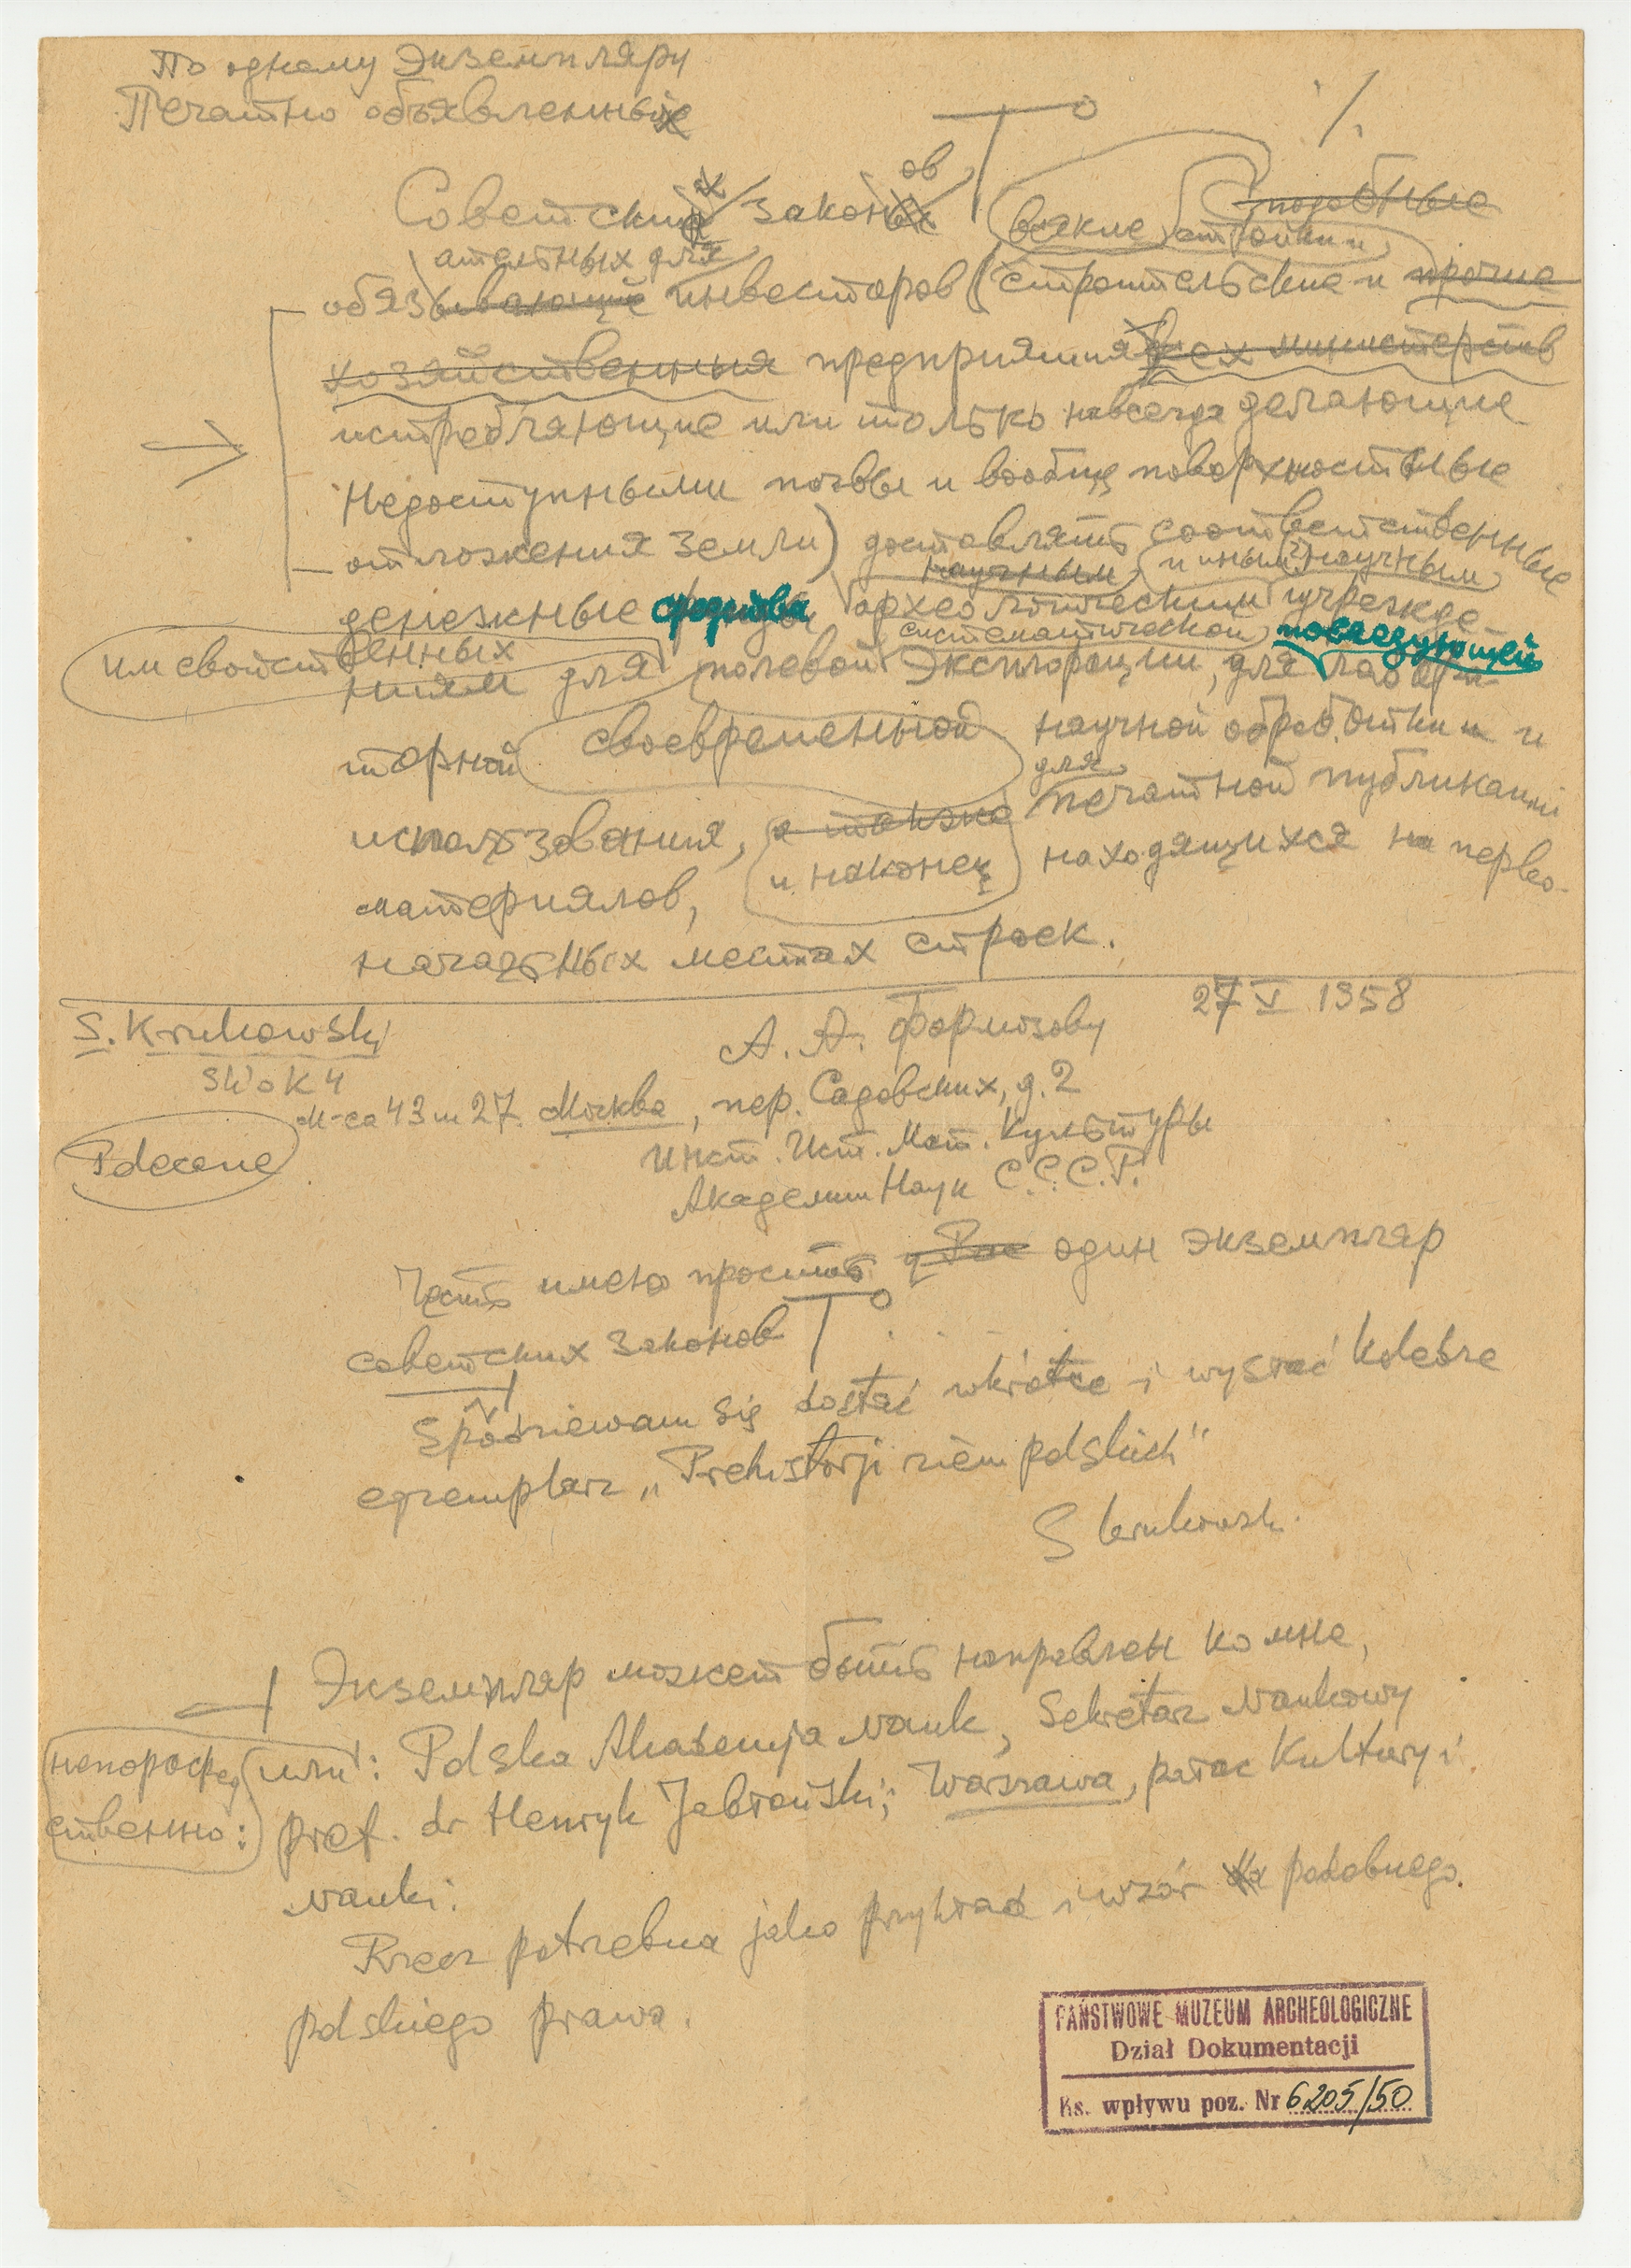 По одному экземпляру
Печатно объявленных
%
Советских законов
подобные
всякие стройки и
ательных для
обязывающие инвесторов (строительские и прочие
хозяйственныя предприятия всех министерств
истребляющие или только навсегда делающие
недоступными почвы и вообще поверхностные
отложения земли) доставлять соответственные
научным и иным научным
денежные средства археологическим учрежде-
систематической
последующей
им свойственных
ниям для полевой эксплорации, для лабора-
торной своевременной научной обработки и
для
использования, а также печатной публикации
материялов, и наконец находящихся на перво-
начальных местах строек.
27 V 1958
S. Krukowski
А. А. Формозову
SWOK 4
М-са 43 и 27. Москва, пер. Садовских, д. 2
Polecone
Инст. Ист. Мат. Культуры
Академии Наук С.С.С.Р.
Честь имею просить один экземпляр
советских законов
Spodziewam się dostać wkrótce i wysłać Koledze
egzemplarz „Prehistorji ziem polskich"
S Krukowski.
Экземпляр может быть направлен ко мне,
непосред
ственно:
или: Polska Akademja Nauk, Sekretarz Naukowy
prof. dr Henryk Jabłoński; Warszawa, pałac Kultury i
Nauki.
Rzecz potrzebna jako przykład i wzór dla podobnego
polskiego prawa.
PAŃSTWOWE MUZEUM ARCHEOLOGICZNE
Dział Dokumentacji
Ks. wpływu poz. Nr 6205/50